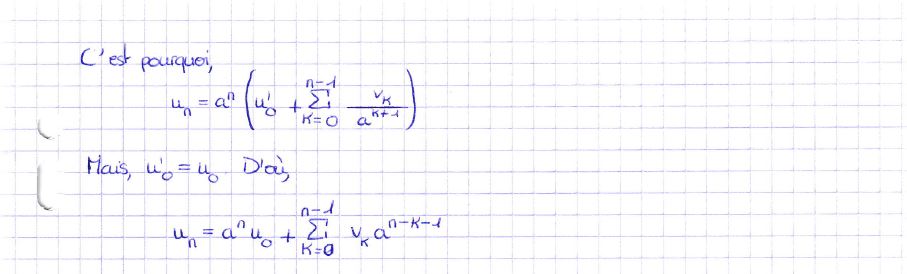 C'est pourquoi,
uₙ = aⁿ (u'₀ + ∑_{K=0}^{n-1} v_K / a^{K+1})
Mais, u'₀ = u₀. D'où,
uₙ = aⁿ u₀ + ∑_{K=0}^{n-1} v_K a^{n-K-1}